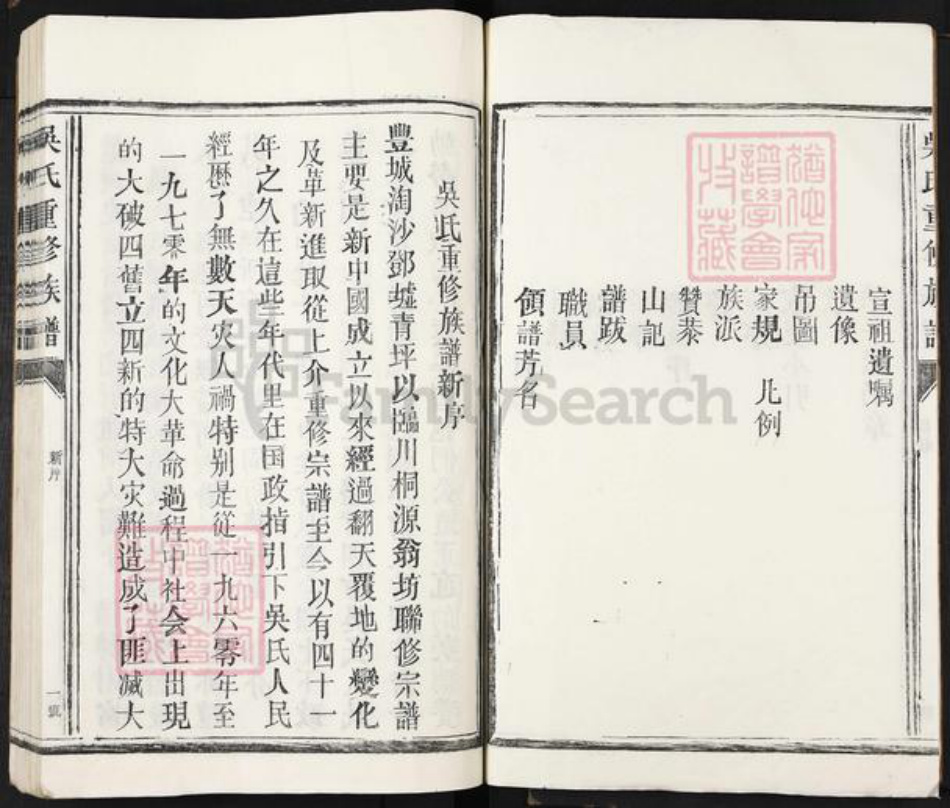 吳氏重修族譜
宣祖遺嘱
遺像
吊圖
家規 凡例
族派
贊恭
山記
譜跋
職員
領譜芳名
猶他家譜學會收藏
吳氏重修族譜新序
豐城淘沙鄧墟青坪以臨川桐源翁坊聯修宗譜
主要是新中國成立以來經過翻天覆地的變化
及革新進取從上介重修宗譜至今以有四十一
年之久在這些年代里在国政指引下吳氏人民
經歷了無數天灾人禍特别是從一九六零年至
一九七零年的文化大革命過程中社会上出現
的大破四舊立四新的特大灾難造成了匪减大
猶他家譜學會收藏
吳氏重修族譜
新序
一號
FamilySearch